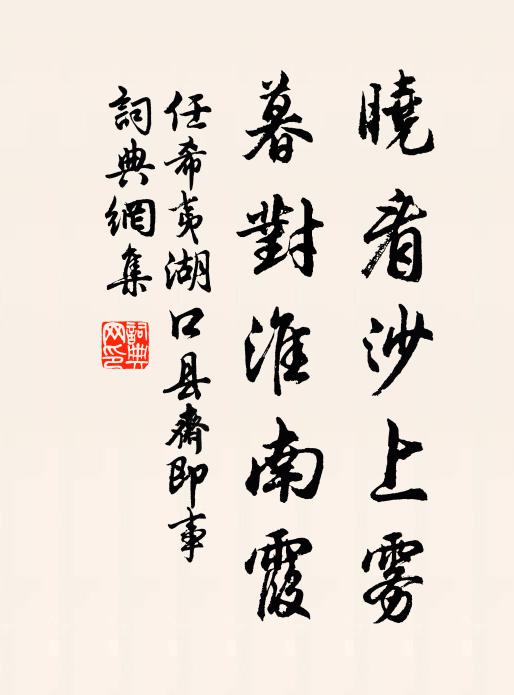 曉看沙上雾
暮對淮南霞
任希夷湖口县齋即事
詞典網集
詞典網印